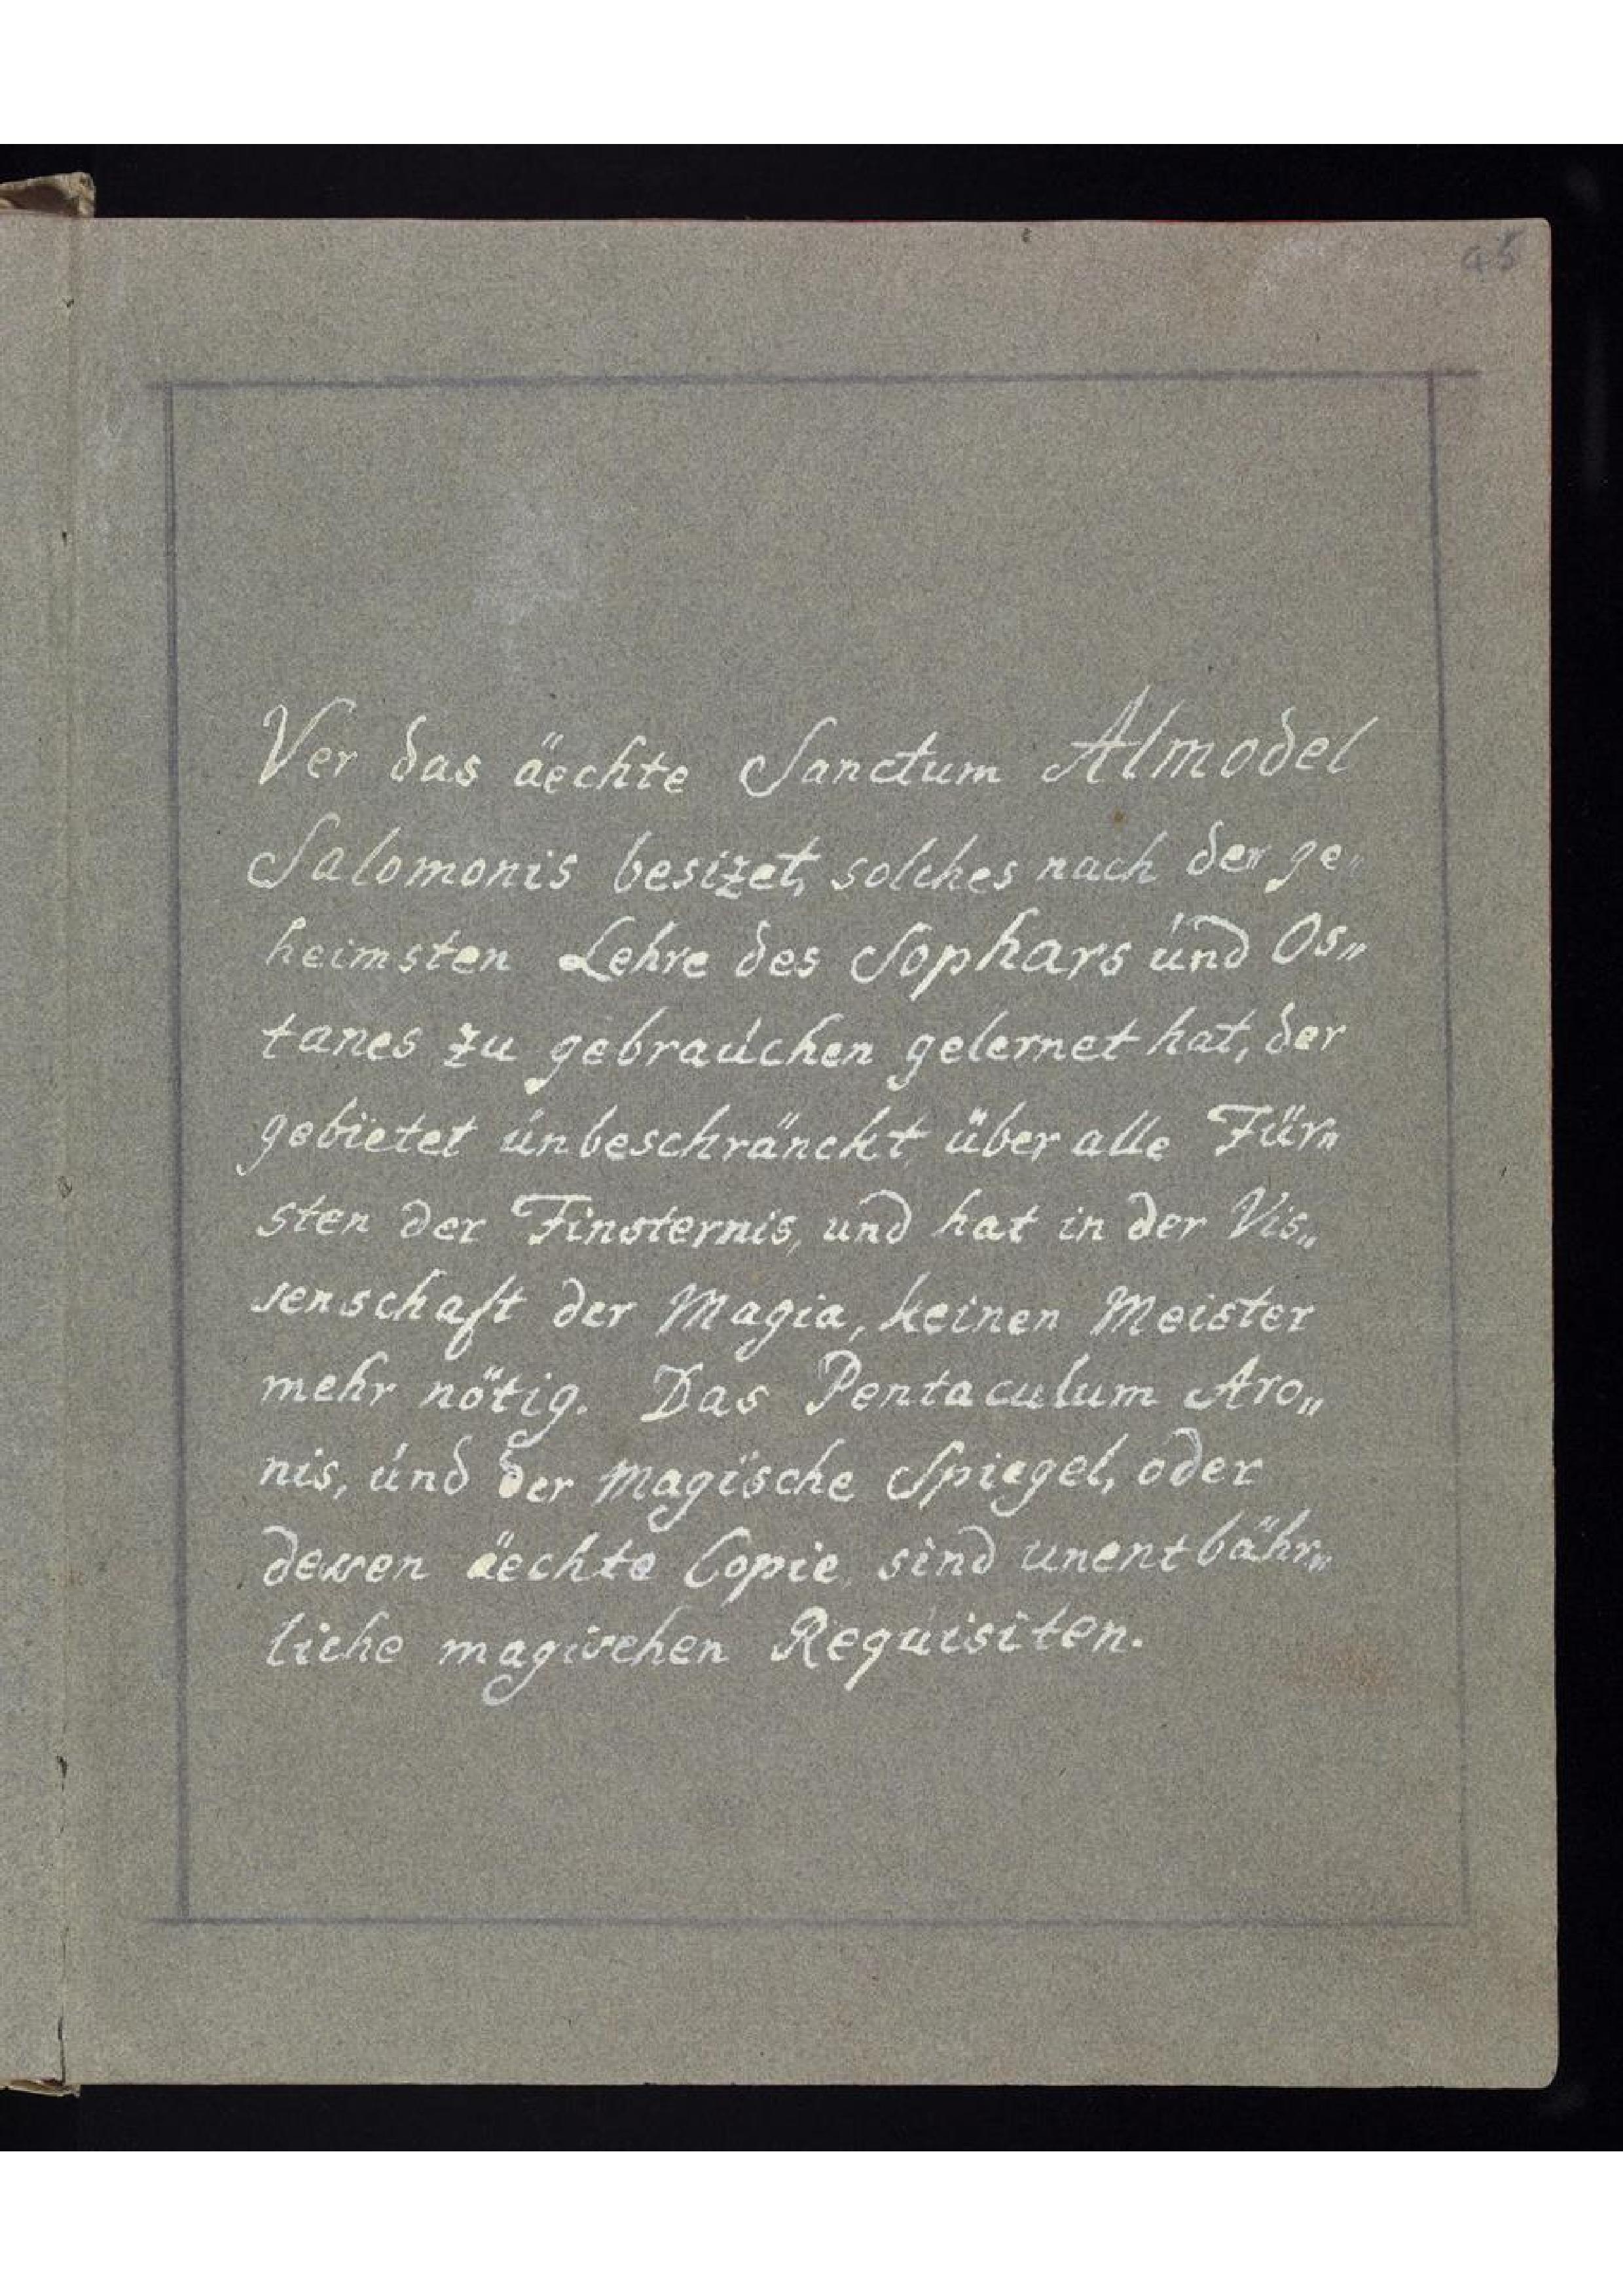 45
Ver das äechte Sanctum Almodel
Salomonis besizet, solches nach der ge„
heimsten Lehre des Sophars und Os„
tanes zu gebrauchen gelernet hat, der
gebietet unbeschränckt über alle Für„
sten der Finsternis, und hat in der Vis„
senschaft der Magia, keinen Meister
mehr nötig. Das Pentaculum Aro„
nis, und der magische Spiegel, oder
dessen äechte Copie, sind unentbähr„
liche magischen Requisiten.